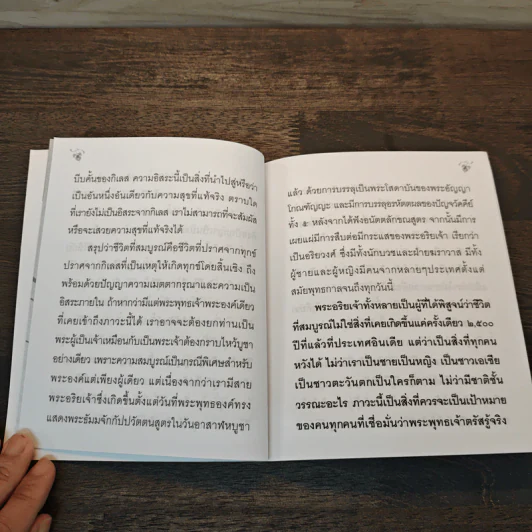 บีบคั้นของกิเลส ความอิสระนี้เป็นสิ่งที่นำไปสู่หรือว่า
เป็นอันหนึ่งอันเดียวกับความสุขที่แท้จริง ตราบใด
ที่เรายังไม่เป็นอิสระจากกิเลส เราไม่สามารถที่จะสัมผัส
หรือจะเสวยความสุขที่แท้จริงได้
สรุปว่าชีวิตที่สมบูรณ์คือชีวิตที่ปราศจากทุกข์
ปราศจากกิเลสที่เป็นเหตุให้เกิดทุกข์โดยสิ้นเชิง ถึง
พร้อมด้วยปัญญาความเมตตากรุณาและความเป็น
อิสระภายใน ถ้าหากว่ามีแต่พระพุทธเจ้าพระองค์เดียว
ที่เคยเข้าถึงภาวะนี้ได้ เราอาจจะต้องยกท่านเป็น
พระผู้เป็นเจ้าเหมือนกับเป็นพระเจ้าต้องกราบไหว้บูชา
อย่างเดียว เพราะความสมบูรณ์เป็นกรณีพิเศษสำหรับ
พระองค์แต่เพียงผู้เดียว แต่เนื่องจากว่าเรามีสาย
พระอริยเจ้าซึ่งเกิดขึ้นตั้งแต่วันที่พระพุทธองค์ทรง
แสดงพระธัมมจักกัปปวัตตนสูตรในวันอาสาฬหบูชา
แล้ว ด้วยการบรรลุเป็นพระโสดาบันของพระอัญญา
โกณฑัญญะ และมีการบรรลุอรหัตตผลของปัญจวัคคีย์
ทั้ง ๕ หลังจากได้ฟังอนัตตลักขณสูตร จากนั้นมีการ
เผยแผ่มีการสืบต่อมีกระแสของพระอริยเจ้า เรียกว่า
เป็นอริยวงศ์ ซึ่งมีทั้งนักบวชและฝ่ายฆราวาส มีทั้ง
ผู้ชายและผู้หญิงมีคนจากหลายๆประเทศตั้งแต่
สมัยพุทธกาลจนถึงทุกวันนี้
พระอริยเจ้าทั้งหลายเป็นผู้ที่ได้พิสูจน์ว่าชีวิต
ที่สมบูรณ์ไม่ใช่สิ่งที่เคยเกิดขึ้นแค่ครั้งเดียว ๒,๕๐๐
ปีที่แล้วที่ประเทศอินเดีย แต่ว่าเป็นสิ่งที่ทุกคน
หวังได้ ไม่ว่าเราเป็นชายเป็นหญิง เป็นชาวเอเชีย
เป็นชาวตะวันตกเป็นใครก็ตาม ไม่ว่ามีชาติชั้น
วรรณะอะไร ภาวะนี้เป็นสิ่งที่ควรจะเป็นเป้าหมาย
ของคนทุกคนที่เชื่อมั่นว่าพระพุทธเจ้าตรัสรู้จริง